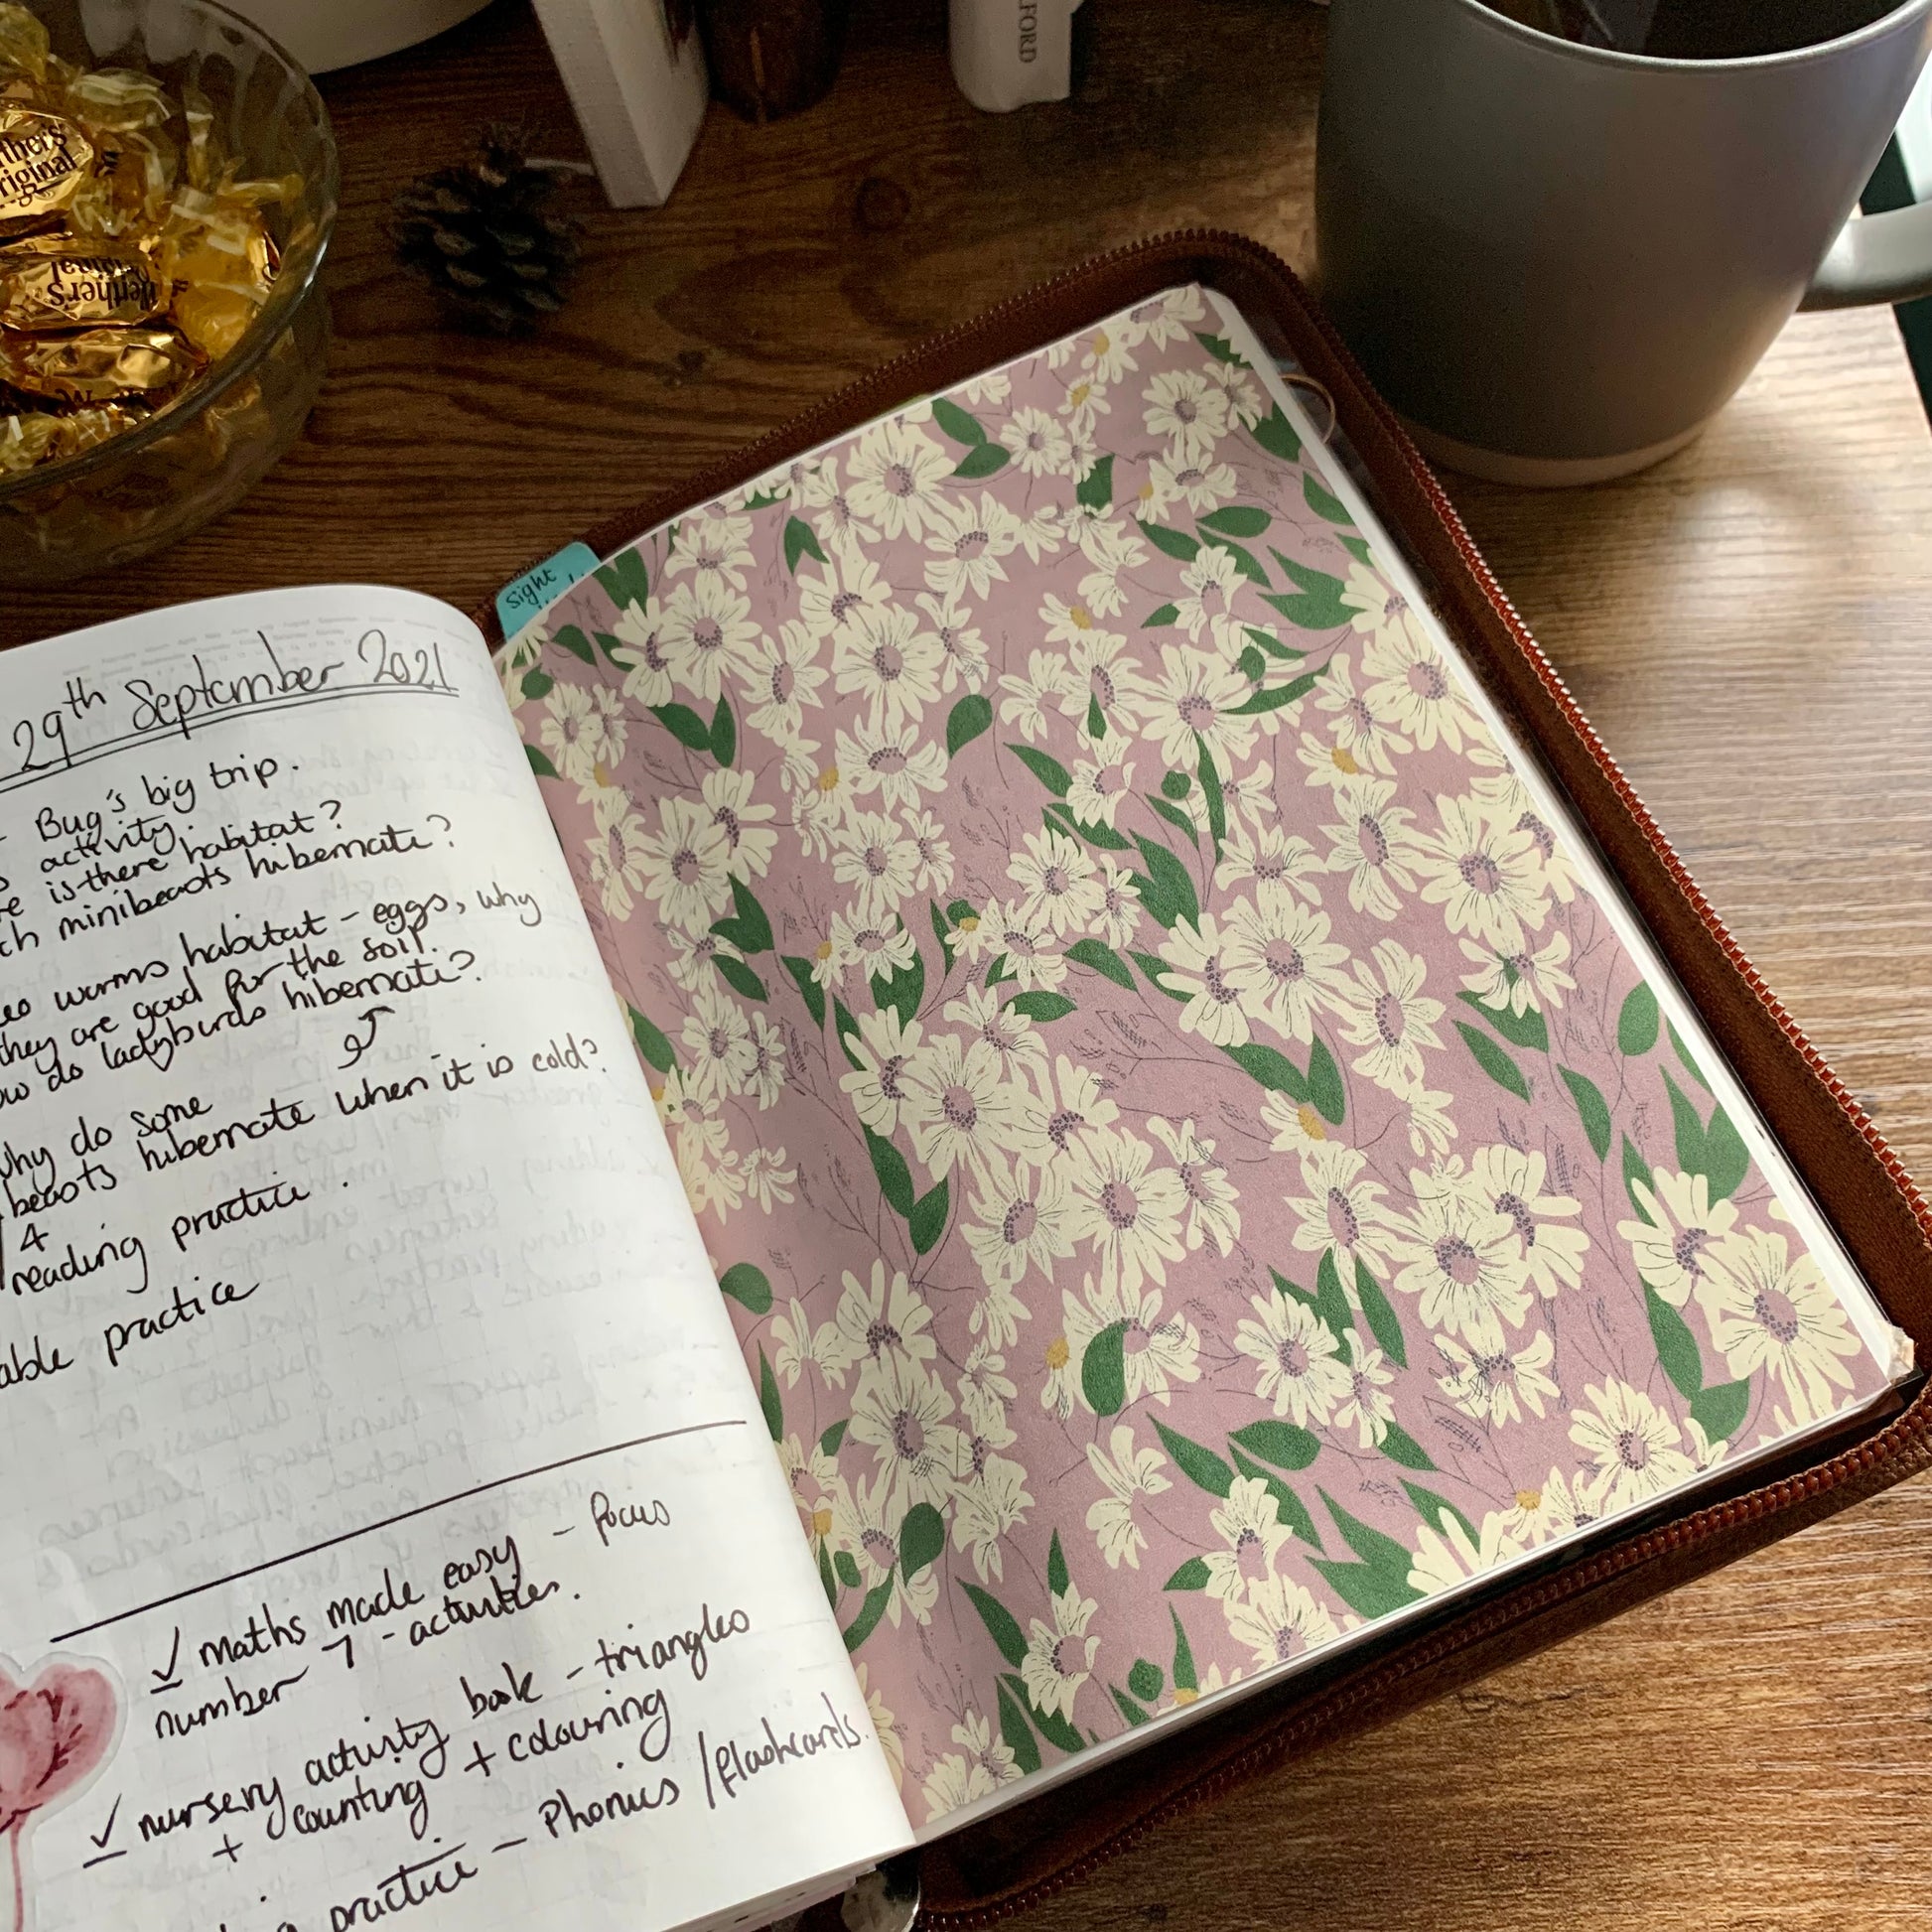 ther's
riginal
erther's
iginal
FORD
Sight
29th September 2021
- Bug's big trip.
activity.
is there habitat?
minibeasts hibernate?
worms habitat - eggs, why
they are good for the soil.
do ladybirds hibernate?
why do some
beasts hibernate when it is cold?
4
reading practice.
able practice
✓ maths made easy - focus
number 7 - activities.
✓ nursery activity book - triangles
+ counting + colouring
practice - Phonics / flashcards.